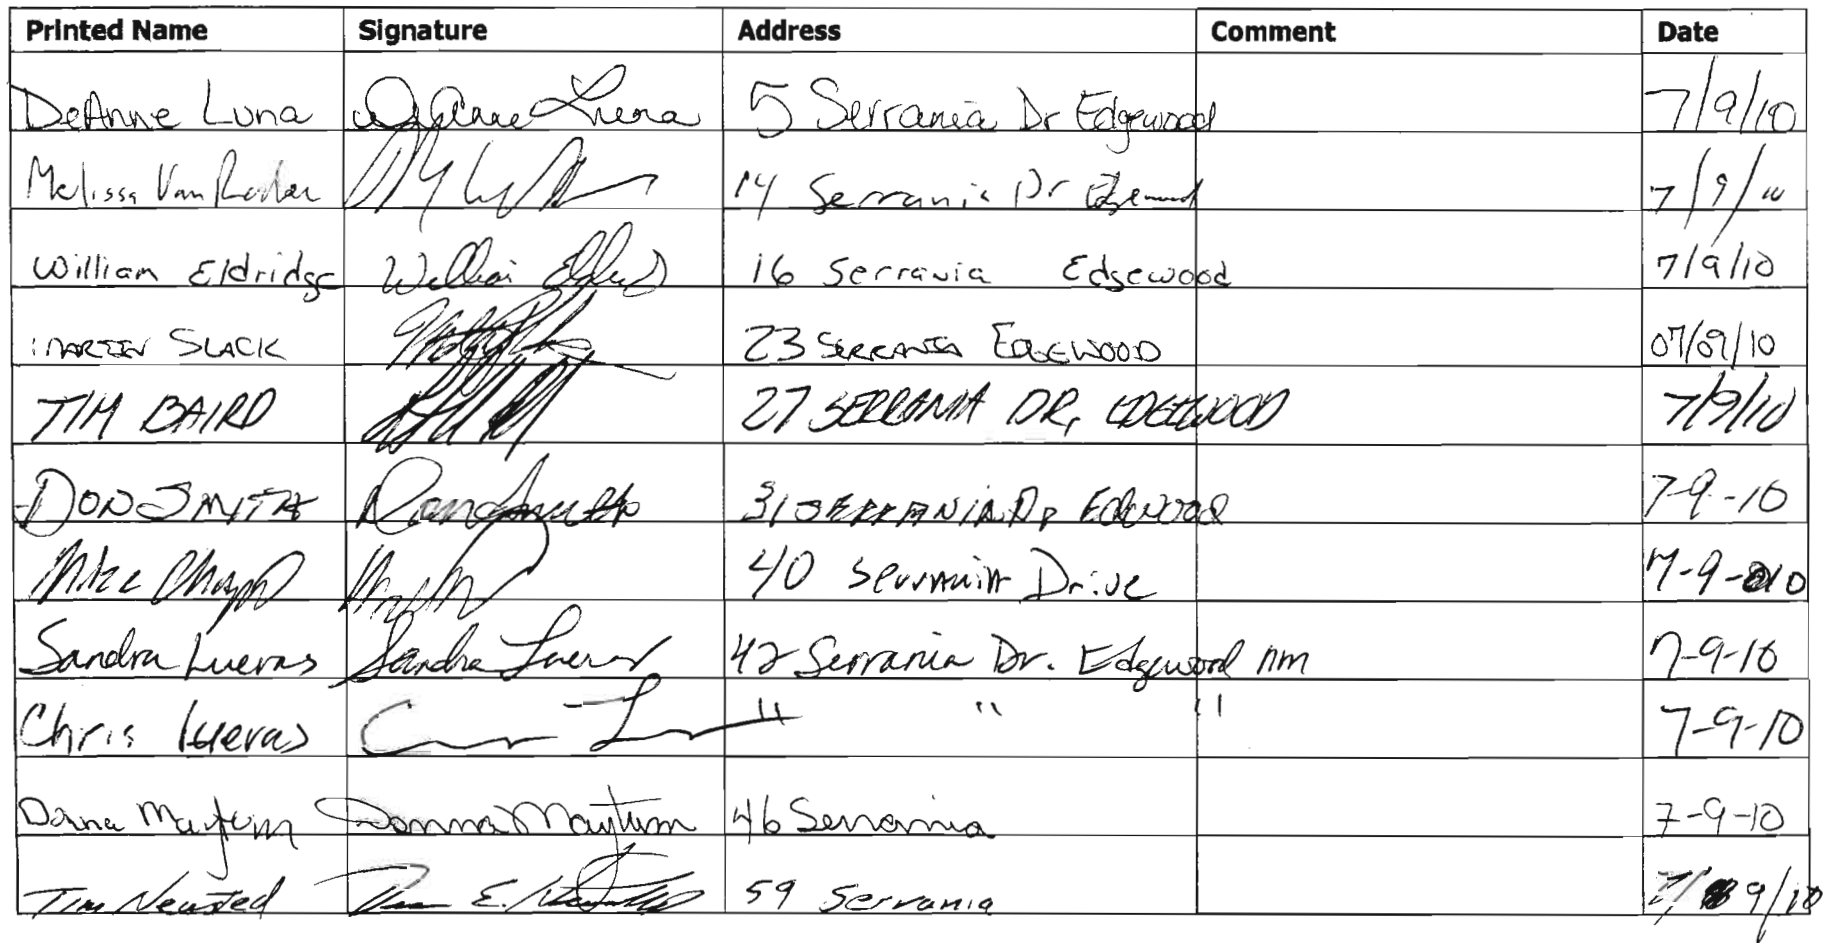 Printed Name Signature Address Comment Date
DeAnne Luna DeAnne Luna 5 Serrania Dr Edgewood 7/9/10
Melissa Van 14 Serrania Dr Edgewood 7/9/10
William Eldridge William 16 Serrania Edgewood 7/9/10
SLACK 23 SERRANIA EDGEWOOD 07/09/10
TIM BAIRD 27 SERRANIA DR, EDGEWOOD 7/9/10
DON SMITH Don Smith 31 SERRANIA Dr Edgewood 7-9-10
Mike 40 Serrania Drive 7-9-10
Sandra Lueras Sandra Lueras 42 Serrania Dr. Edgewood nm 7-9-10
Chris Lueras " " " 7-9-10
Donna Maytum Donna Maytum 46 Serrania 7-9-10
Tim 59 Serrania 7/9/10